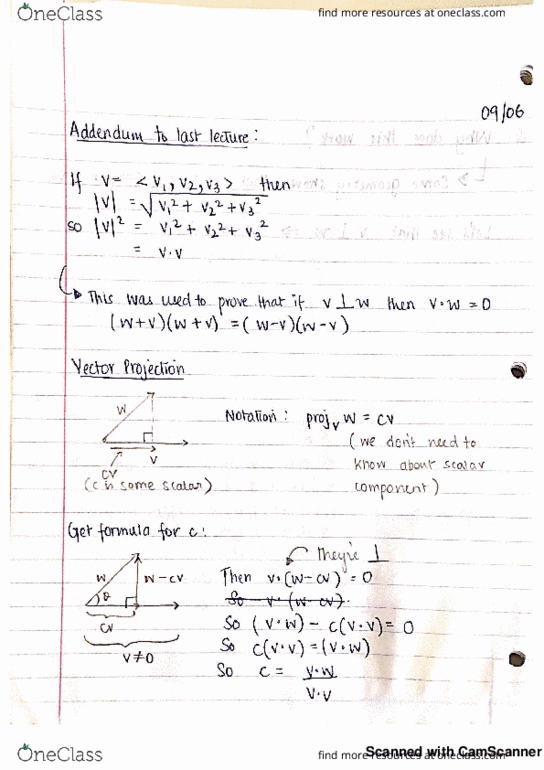 OneClass
find more resources at oneclass.com
09/06
Addendum to last lecture:
If v = <v₁, v₂, v₃> then
|v| = √v₁² + v₂² + v₃²
so |v|² = v₁² + v₂² + v₃²
= v·v
This was used to prove that if v ⊥ w then v·w = 0
(w+v)(w+v) = (w-v)(w-v)
Vector Projection
w
v
cv
(c is some scalar)
Notation: projᵥ w = cv
(we don't need to
know about scalar
component)
Get formula for c:
they're ⊥
w
w-cv
θ
cv
v≠0
Then v·(w-cv) = 0
So v·(w-cv).
So (v·w) - c(v·v) = 0
So c(v·v) = (v·w)
So c = v·w
v·v
OneClass
find more resources at oneclass.com
Scanned with CamScanner